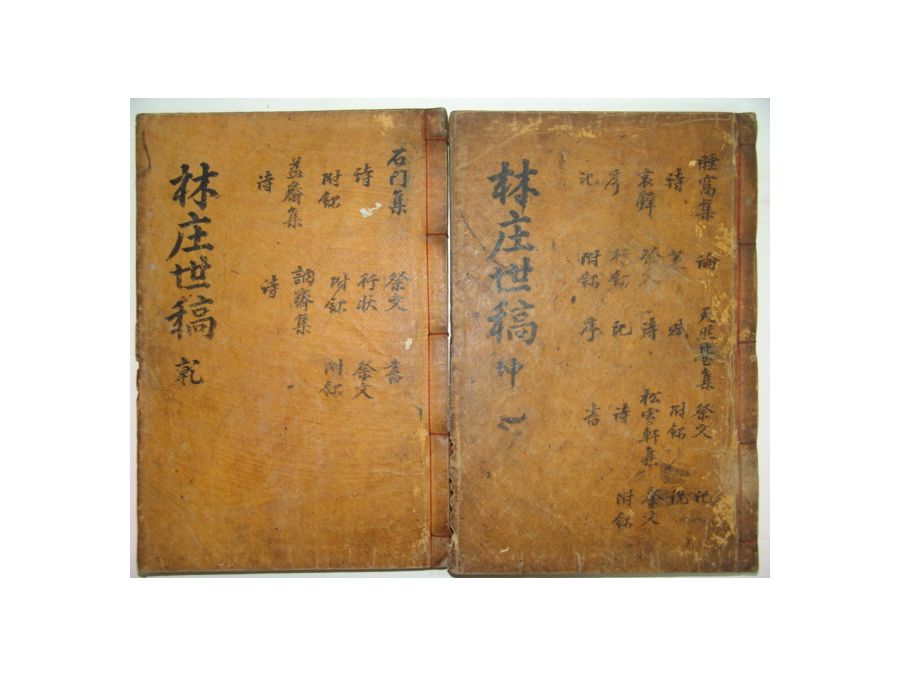 石门集 祭文 書
詩 行狀 祭文
附錄 附錄 附錄
齋集 訥齋集
詩 詩
林庄世稿 乾
睡窩集 論 集 祭文 記
詩 賦 附錄 說
哀辭 祭文 詩 松雲軒集 祭文
序 記 詩 附錄
記 附錄 序 書
林庄世稿 坤